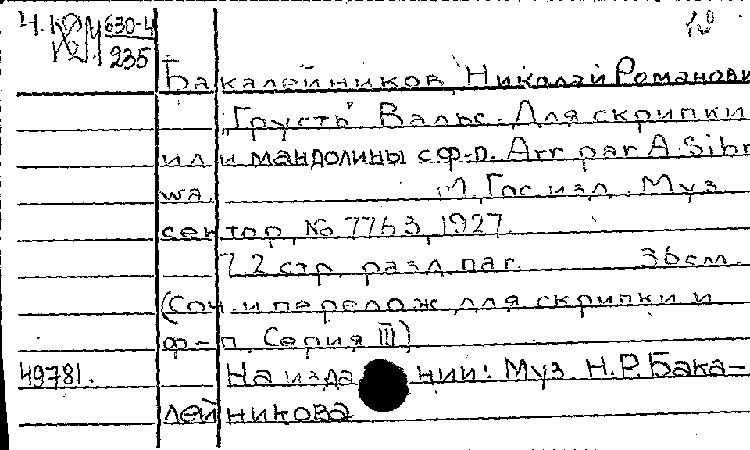 630-4
235
Бакалейников Николай Романови
"Грусть" Вальс. Для скрипки
или мандолины с ф-п. Arr par A. Sibr
wa. М. Гос. изд. Муз.
сектор, № 7763, 1927.
7 2 стр. разд. паг. 36 см.
(Соч. и перелож. для скрипки и
ф-п. Серия III)
49781. На издании: Муз. Н.Р. Бака-
лейникова